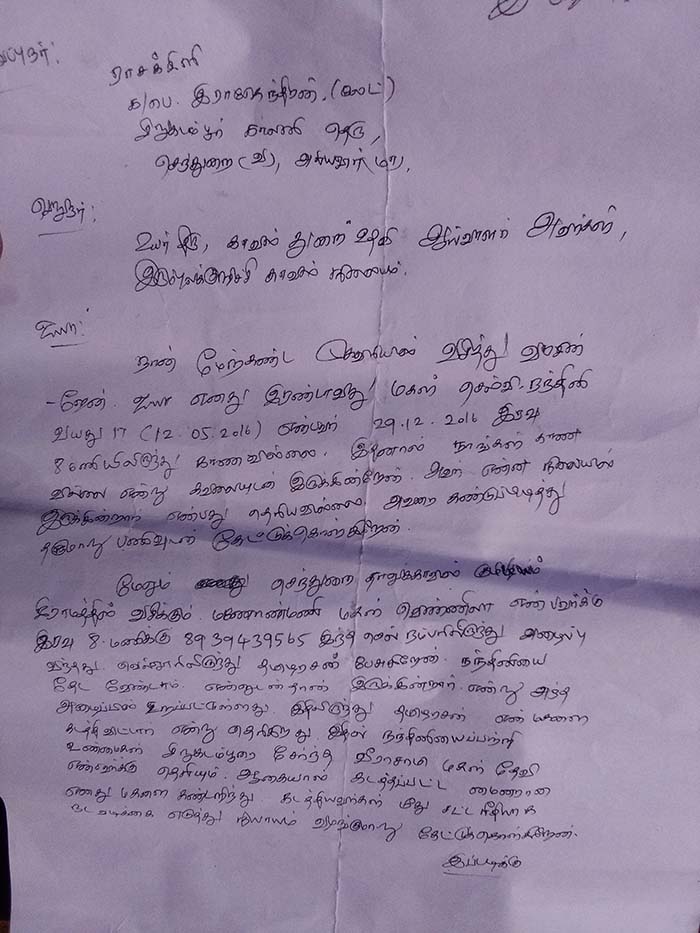 ப்புநர்:
ராசக்கிளி
க/பெ. இராஜேந்திரன். (லேட்)
சிறுகடம்பூர் காலனி தெரு,
செந்துறை (வ), அரியலூர் (மா),
பெறுநர்:
உயர்திரு, காவல் துறை உதவி ஆய்வாளர் அவர்கள்,
இரும்புலிக்குறிச்சி காவல் நிலையம்.
ஐயா:
நான் மேற்கண்ட முகவரியில் வசித்து வருகின்
-றேன். ஐயா எனது இரண்டாவது மகள் செல்வி. நந்தினி
வயது 17 (12.05.2016) என்பவர் 29.12.2016 இரவு
8 மணியிலிருந்து காணவில்லை. இதனால் நாங்கள் காண
வில்லை என்று கவலையுடன் இருக்கின்றேன். அவர் என்ன நிலையில்
இருக்கின்றார் என்பது தெரியவில்லை. அவரை கண்டுபிடித்து
தருமாறு பணிவுடன் கேட்டுக்கொள்கிறேன்.
மேலும் செந்துறை தாலுக்காவில்
கிராமத்தில் வசிக்கும். மணோண்மணி மகள் வெண்ணிலா என்பவர்க்கு
இரவு 8. மணிக்கு 8939439565 இந்த செல் நம்பரிலிருந்து அழைப்பு
வந்தது. தமிழரசன் பேசுகிறேன். நந்தினியை
தேட வேண்டாம். என்னுடன் தான் இருக்கின்றார். என்று அந்த
அழைப்பில் கூறப்பட்டுள்ளது. இதிலிருந்து தமிழரசன் என் மகளை
கடத்திவிட்டான் என்று தெரிகிறது. இதில் நந்தினியைப்பற்றி
உண்மைகள் சிறுகடம்பூரை சேர்ந்த வீராசாமி மகள் தேவி
என்பவர்க்கு தெரியும். ஆகையால் கடத்தப்பட்ட மைனரான
எனது மகளை கண்டறிந்து. கடத்தியவர்கள் மீது சட்ட ரீதியாக
நடவடிக்கை எடுத்து நியாயம் வழங்குமாறு கேட்டுக்கொள்கிறேன்.
இப்படிக்கு